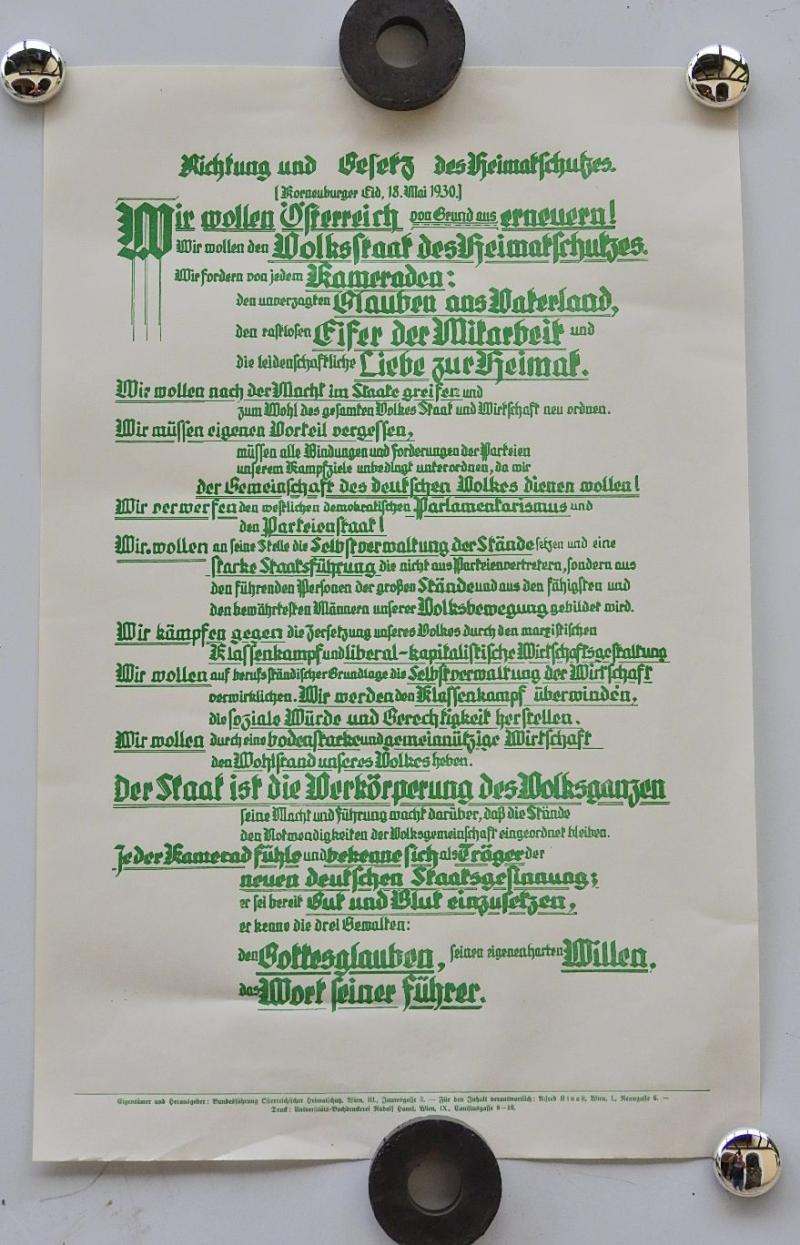 Richtung und Gesetz des Heimatschutzes.
[Korneuburger Eid, 18. Mai 1930.]
Wir wollen Österreich von Grund aus erneuern!
Wir wollen den Volksstaat des Heimatschutzes.
Wir fordern von jedem Kameraden:
den unverzagten Glauben ans Vaterland,
den rastlosen Eifer der Mitarbeit und
die leidenschaftliche Liebe zur Heimat.
Wir wollen nach der Macht im Staate greifen und
zum Wohl des gesamten Volkes Staat und Wirtschaft neu ordnen.
Wir müssen eigenen Vorteil vergessen,
müssen alle Bindungen und Forderungen der Parteien
unserem Kampfziele unbedingt unterordnen, da wir
der Gemeinschaft des deutschen Volkes dienen wollen!
Wir verwerfen den westlichen demokratischen Parlamentarismus und
den Parteienstaat!
Wir wollen an seine Stelle die Selbstverwaltung der Stände setzen und eine
starke Staatsführung die nicht aus Parteienvertretern, sondern aus
den führenden Personen der großen Stände und aus den fähigsten und
den bewährtesten Männern unserer Volksbewegung gebildet wird.
Wir kämpfen gegen die Zersetzung unseres Volkes durch den marxistischen
Klassenkampf und liberal-kapitalistische Wirtschaftsgestaltung
Wir wollen auf berufsständischer Grundlage die Selbstverwaltung der Wirtschaft
verwirklichen. Wir werden den Klassenkampf überwinden,
die soziale Würde und Gerechtigkeit herstellen.
Wir wollen durch eine bodenstarke und gemeinnützige Wirtschaft
den Wohlstand unseres Volkes heben.
Der Staat ist die Verkörperung des Volksganzen
seine Macht und Führung wacht darüber, daß die Stände
den Notwendigkeiten der Volksgemeinschaft eingeordnet bleiben.
Jeder Kamerad fühle und bekenne sich als Träger der
neuen deutschen Staatsgesinnung;
er sei bereit Gut und Blut einzusetzen,
er kenne die drei Gewalten:
den Gottesglauben, seinen eigenen harten Willen,
das Wort seiner Führer.
Eigentümer und Herausgeber: Bundesführung Österreichischer Heimatschutz, Wien, III., Jauresgasse 3. — Für den Inhalt verantwortlich: Alfred Wien, I., Renngasse 6. —
Druck: Universitäts-Buchdruckerei Rudolf Hanel, Wien, IX., Canisiusgasse 8—10.